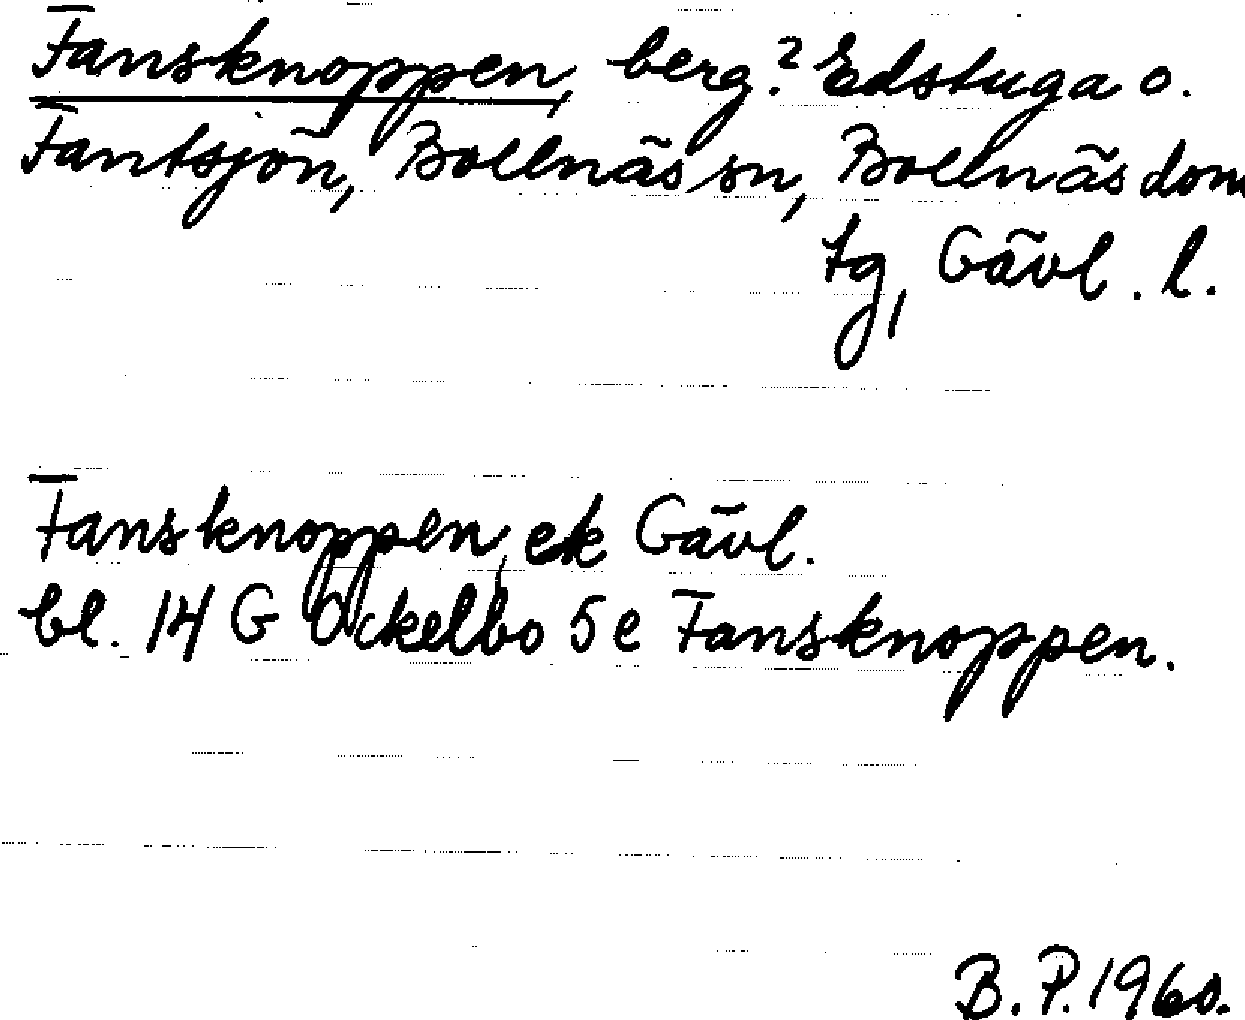 Fansknoppen, berg? Edstuga o.
Fantsjön, Bollnäs sn, Bollnäs dom
tg, Gävl. l.
Fansknoppen, ek Gävl.
bl. 14 G Ockelbo 5 e Fansknoppen.
B. P. 1960.